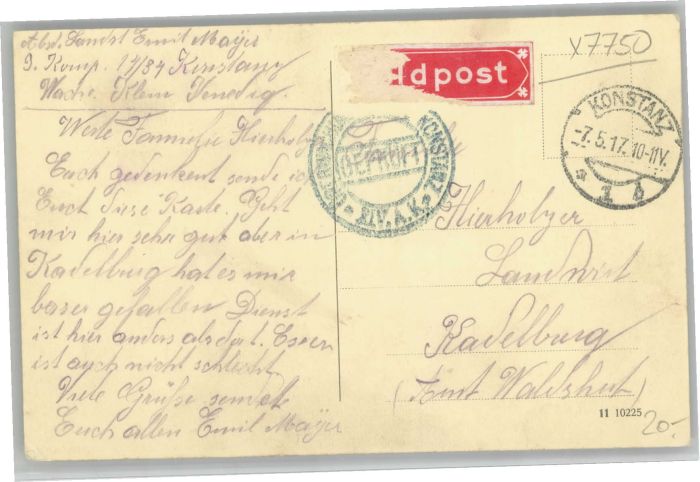 Abs. Landst Emil Mayer
9. Komp. 14/84 Konstanz
Wache. Klein Venedig.
Werte Familie Hierholzer
Euch gedenkent sende ich
Euch diese Karte. Geht
mir hier sehr gut aber in
Kadelburg hat es mir
baser gefallen Dienst
ist hier anders als dort. Essen
ist auch nicht schlecht
Viele Grüße sendet
Euch allen Emil Mayer
ldpost
x7750
KONSTANZ
-7.5.17. 10-11V.
* 1 b
KONSTANZ
GEPRÜFT
XIV. A.K.
Familie
Hierholzer
Landwirt
Kadelburg
(Amt Waldshut)
11 10225
20.-